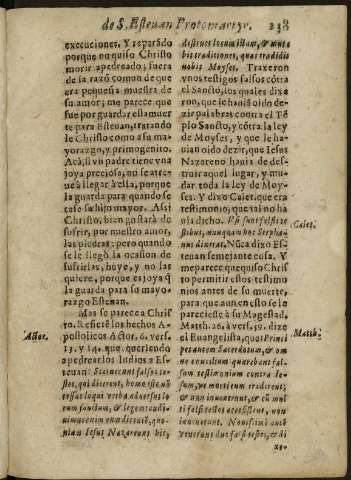 de S. Esteuan Protomartyr. 238
execuciones. Y reparādo
porque no quiso Christo
morir apedreado; fuera
de la razō comun de que
era pequeña muestra de
su amor; me parece que
fue por guardar esta muer
te para Esteuan, tratando
le Christo como a su ma
yorazgo, y primogenito.
Acà, si vn padre tiene vna
joya preciosa, no se atre-
ue à llegar à ella, porque
la guarda para quando se
case su hijo mayor. Assi
Christo, bien gustarà de
sufrir, por nuestro amor,
las piedras; pero quando
se le llegò la ocasion de
sufrirlas, huye, y no las
quiere, porque es joya q̄
la guarda para su mayo-
razgo Esteuan.
Mas se parece a Chris-
to. Refiere los hechos A-
postolicos Actor. 6. vers.
13. y 14. que queriendo
apedrearlo los Iudios a Es-
teuan: Statuerunt falsos tes-
tes, qui dicerent, homo iste nō
cessat loqui verba aduersus lo
cum sanctum, & legem: audi-
uimus enim eum dicētē, quo-
niam Iesus Nazarenus hic,
Actor.
destruet locum istum, & muta
bit traditiones, quas tradidit
nobis Moyses. Traxeron
vnos testigos falsos cōtra
el Santo, los quales dixe-
ron, que le haũiā oido de-
zir palabras contra el Tē
plo Santo, y cōtra la ley
de Moyses, y que le ha-
uian oido dezir, que Iesus
Nazareno hauia de des-
truir aquel lugar, y mu-
dar toda la ley de Moy-
ses. Y dixo Caiet. que era
testimonio, que tal no ha
uia dicho. Vsi sunt falsis te
stibus, nunquam hoc Stepha-
nus dixerat, Nūca dixo Es-
teuan semejante cosa. Y
me parece que quiso Chris
to permitir estos testimo
nios antes de su muerte,
para que aun en esto se le
pareciesse à su Magestad,
Matth. 26. à vers. 59. dize
el Euangelista, que Princi
pes autem Sacerdotum, & om
ne concilium quærebant fal-
sum testimonium contra Ie-
sum, vt morti eum traderent;
& non inuenerunt, & cū mul
ti falsi testes accessissent, non
inuenerunt. Nouissimè autē
venerunt duo falsi testes, & di
xe-
Caiet.
Matth.